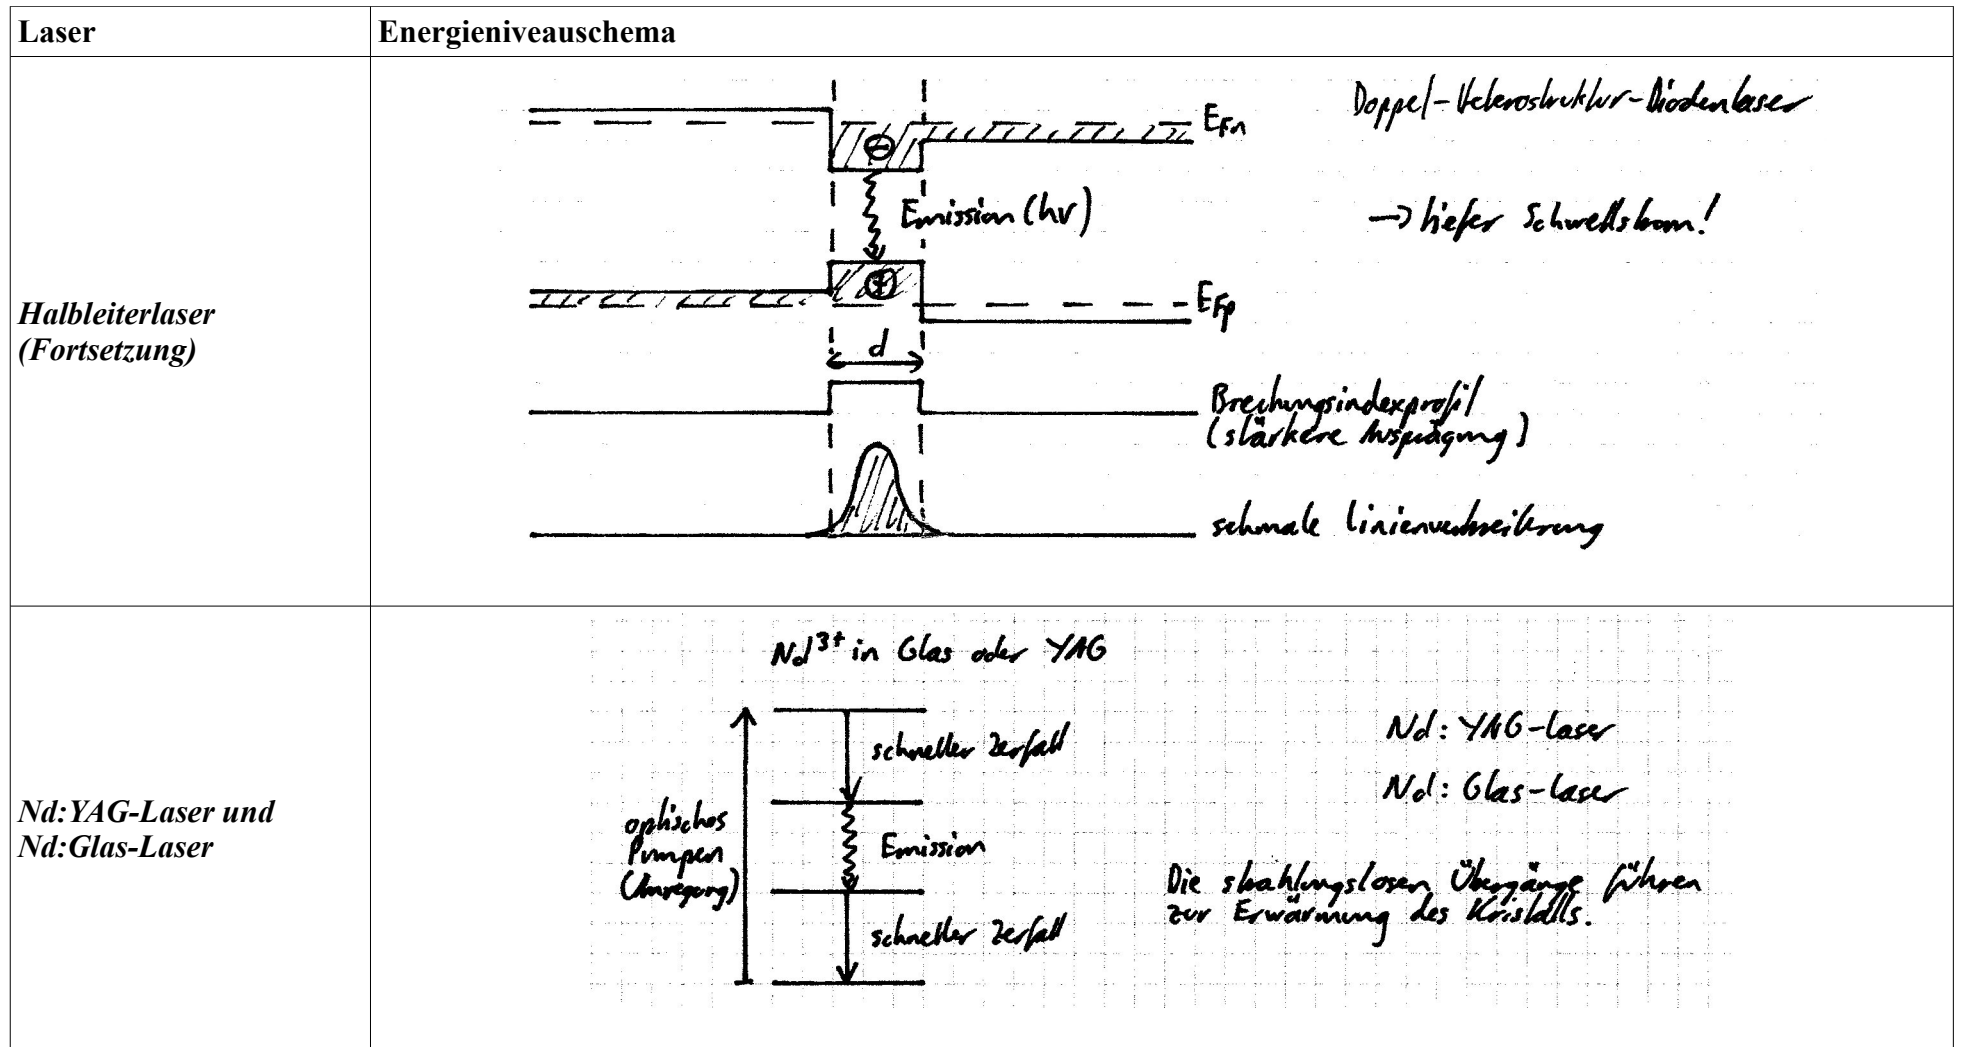 Laser
Energieniveauschema
Halbleiterlaser
(Fortsetzung)
Doppel-Heterostruktur-Diodenlaser
→ tiefer Schwellstrom!
E_Fn
Emission (hν)
E_Fp
d
Brechungsindexprofil
(stärkere Ausprägung)
schmale Linienverbreiterung
Nd:YAG-Laser und
Nd:Glas-Laser
Nd³⁺ in Glas oder YAG
schneller Zerfall
optisches
Pumpen
(Anregung)
Emission
schneller Zerfall
Nd: YAG-Laser
Nd: Glas-Laser
Die strahlungslosen Übergänge führen
zur Erwärmung des Kristalls.